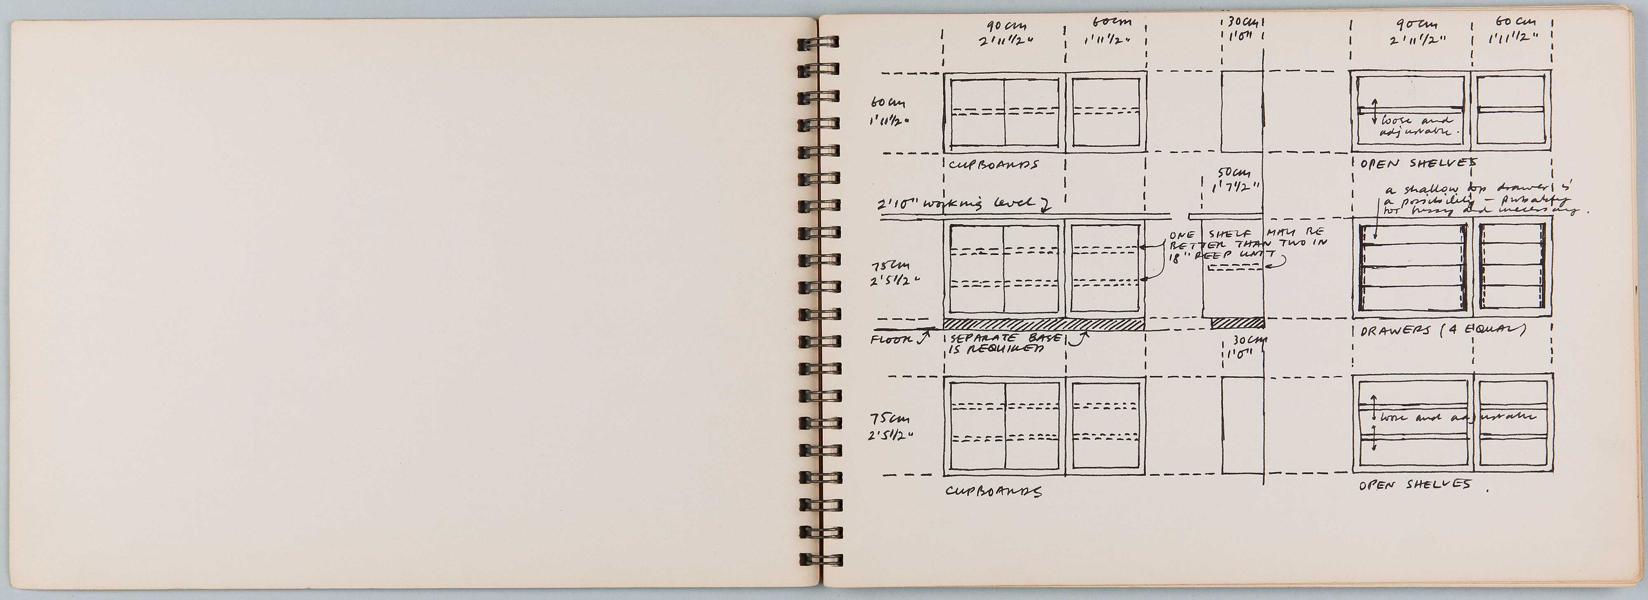 90cm
2'11½"
60cm
1'11½"
30cm
1'0"
90cm
2'11½"
60cm
1'11½"
60cm
1'11½"
loose and
adjustable.
CUPBOARDS
OPEN SHELVES
50cm
1'7½"
2'10" working level
a shallow top drawer is
a possibility – probably
too fussy and unnecessary.
ONE SHELF MAY BE
BETTER THAN TWO IN
18" DEEP UNIT
75cm
2'5½"
FLOOR
SEPARATE BASE
IS REQUIRED
DRAWERS (4 EQUAL)
30cm
1'0"
75cm
2'5½"
loose and adjustable
CUPBOARDS
OPEN SHELVES.